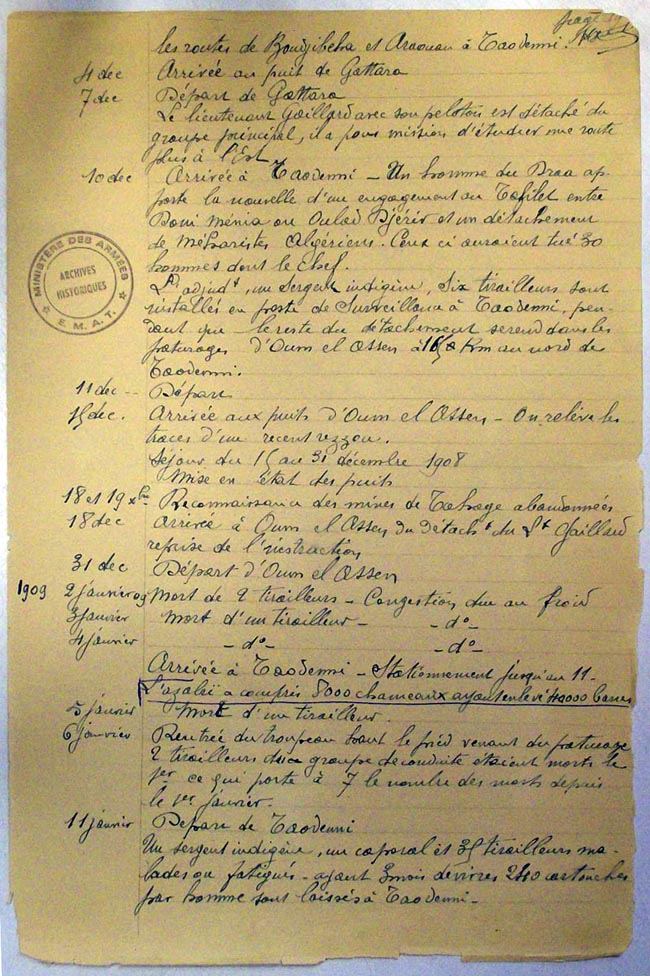 page
les routes de Boudjibeha et Araouan à Taodenni.
4 dec Arrivée au puit de Gattara
7 dec Départ de Gattara
Le lieutenant Gaillard avec son peloton est détaché du
groupe principal, il a pour mission d'étudier une route
plus à l'Est
10 dec Arrivée à Taodenni – Un homme du Draa ap-
porte la nouvelle d'un engagement au Tafilet entre
Doui Ménia ou Oulad Djérir et un détachement
de Méharistes Algériens. Ceux ci auraient tué 30
hommes dont le Chef.
L'adjudt, un Sergent indigène, Six tirailleurs sont
installés en poste de Surveillance à Taodenni, pen-
dant que le reste du détachement se rend dans les
pâturages d'Oum el Assen à Km au nord de
Taodenni.
MINISTÈRE DES ARMÉES
ARCHIVES
HISTORIQUES
★ E.M.A.T. ★
11 dec -- Départ
15 dec. Arrivée aux puits d'Oum el Assen – On relève les
traces d'un récent rezzou.
Séjour du 15 au 31 décembre 1908
Mise en état des puits
18 et 19 xbre Reconnaissance des mines de abandonnées
18 dec Arrivée à Oum el Assen du Détacht du Lt Gaillard
reprise de l'instruction
31 dec Départ d'Oum el Assen
1909 2 janvier 09 Mort de 2 tirailleurs – Congestion due au froid
3 janvier Mort d'un tirailleur – – d° –
4 janvier – d° – – d° –
Arrivée à Taodenni – Stationnement jusqu'au 11 –
L'azalaï a compris 8000 chameaux ayant enlevé 40000 barres
5 janvier Mort d'un tirailleur.
6 janvier Rentrée du troupeau haut le pied venant du pâturage
2 tirailleurs du groupe de conduite étaient morts le
1er ce qui porte à 7 le nombre des morts depuis
le 1er janvier.
11 janvier Départ de Taodenni
Un sergent indigène, un caporal et 35 tirailleurs ma-
lades ou fatigués – ayant 3 mois de vivres 240 cartouches
par homme sont laissés à Taodenni –